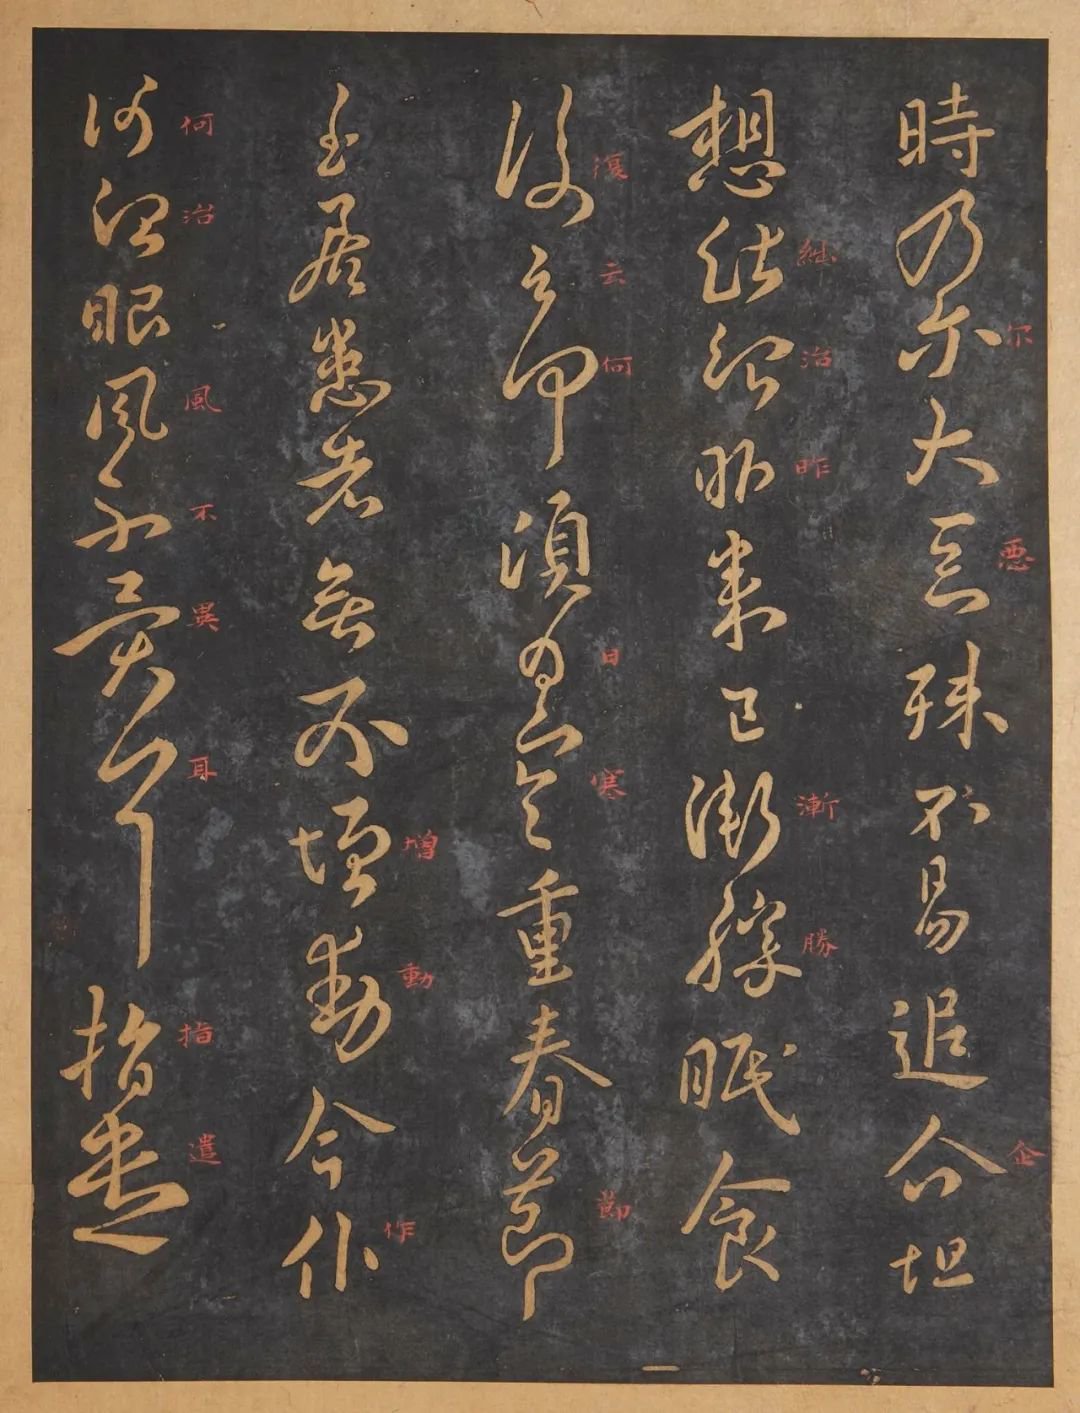 時乃尔大惡殊不易追企坦
尔悪企
想繼治昨來已漸勝眠食
継治昨漸勝
復云何頃日寒重春節
復云何日寒節
至居患者無不增動今作
增動作
何治眼風不異耳指遣
何治風不異耳指遣